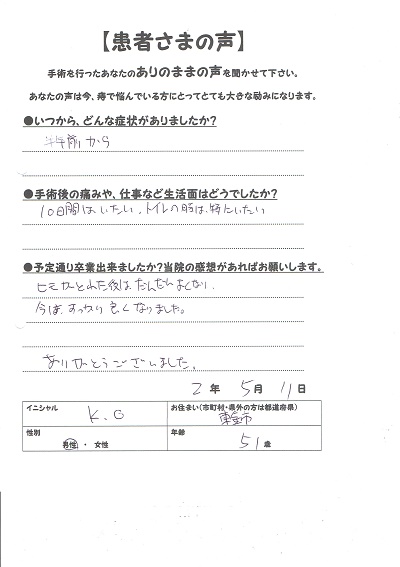 【患者さまの声】
手術を行ったあなたのありのままの声を聞かせて下さい。
あなたの声は今、痔で悩んでいる方にとってとても大きな励みになります。
●いつから、どんな症状がありましたか?
半年前から
●手術後の痛みや、仕事など生活面はどうでしたか?
10日間はいたい、トイレの時は、特にいたい
●予定通り卒業出来ましたか?当院の感想があればお願いします。
ヒモがとれた後は、だんだんよくない
今は、すっかり良くなりました。
ありがとうございました。
2年 5月 11日
イニシャル K.O
お住まい(市町村・県外の方は都道府県)
性別 男性 ・ 女性
年齢 51歳